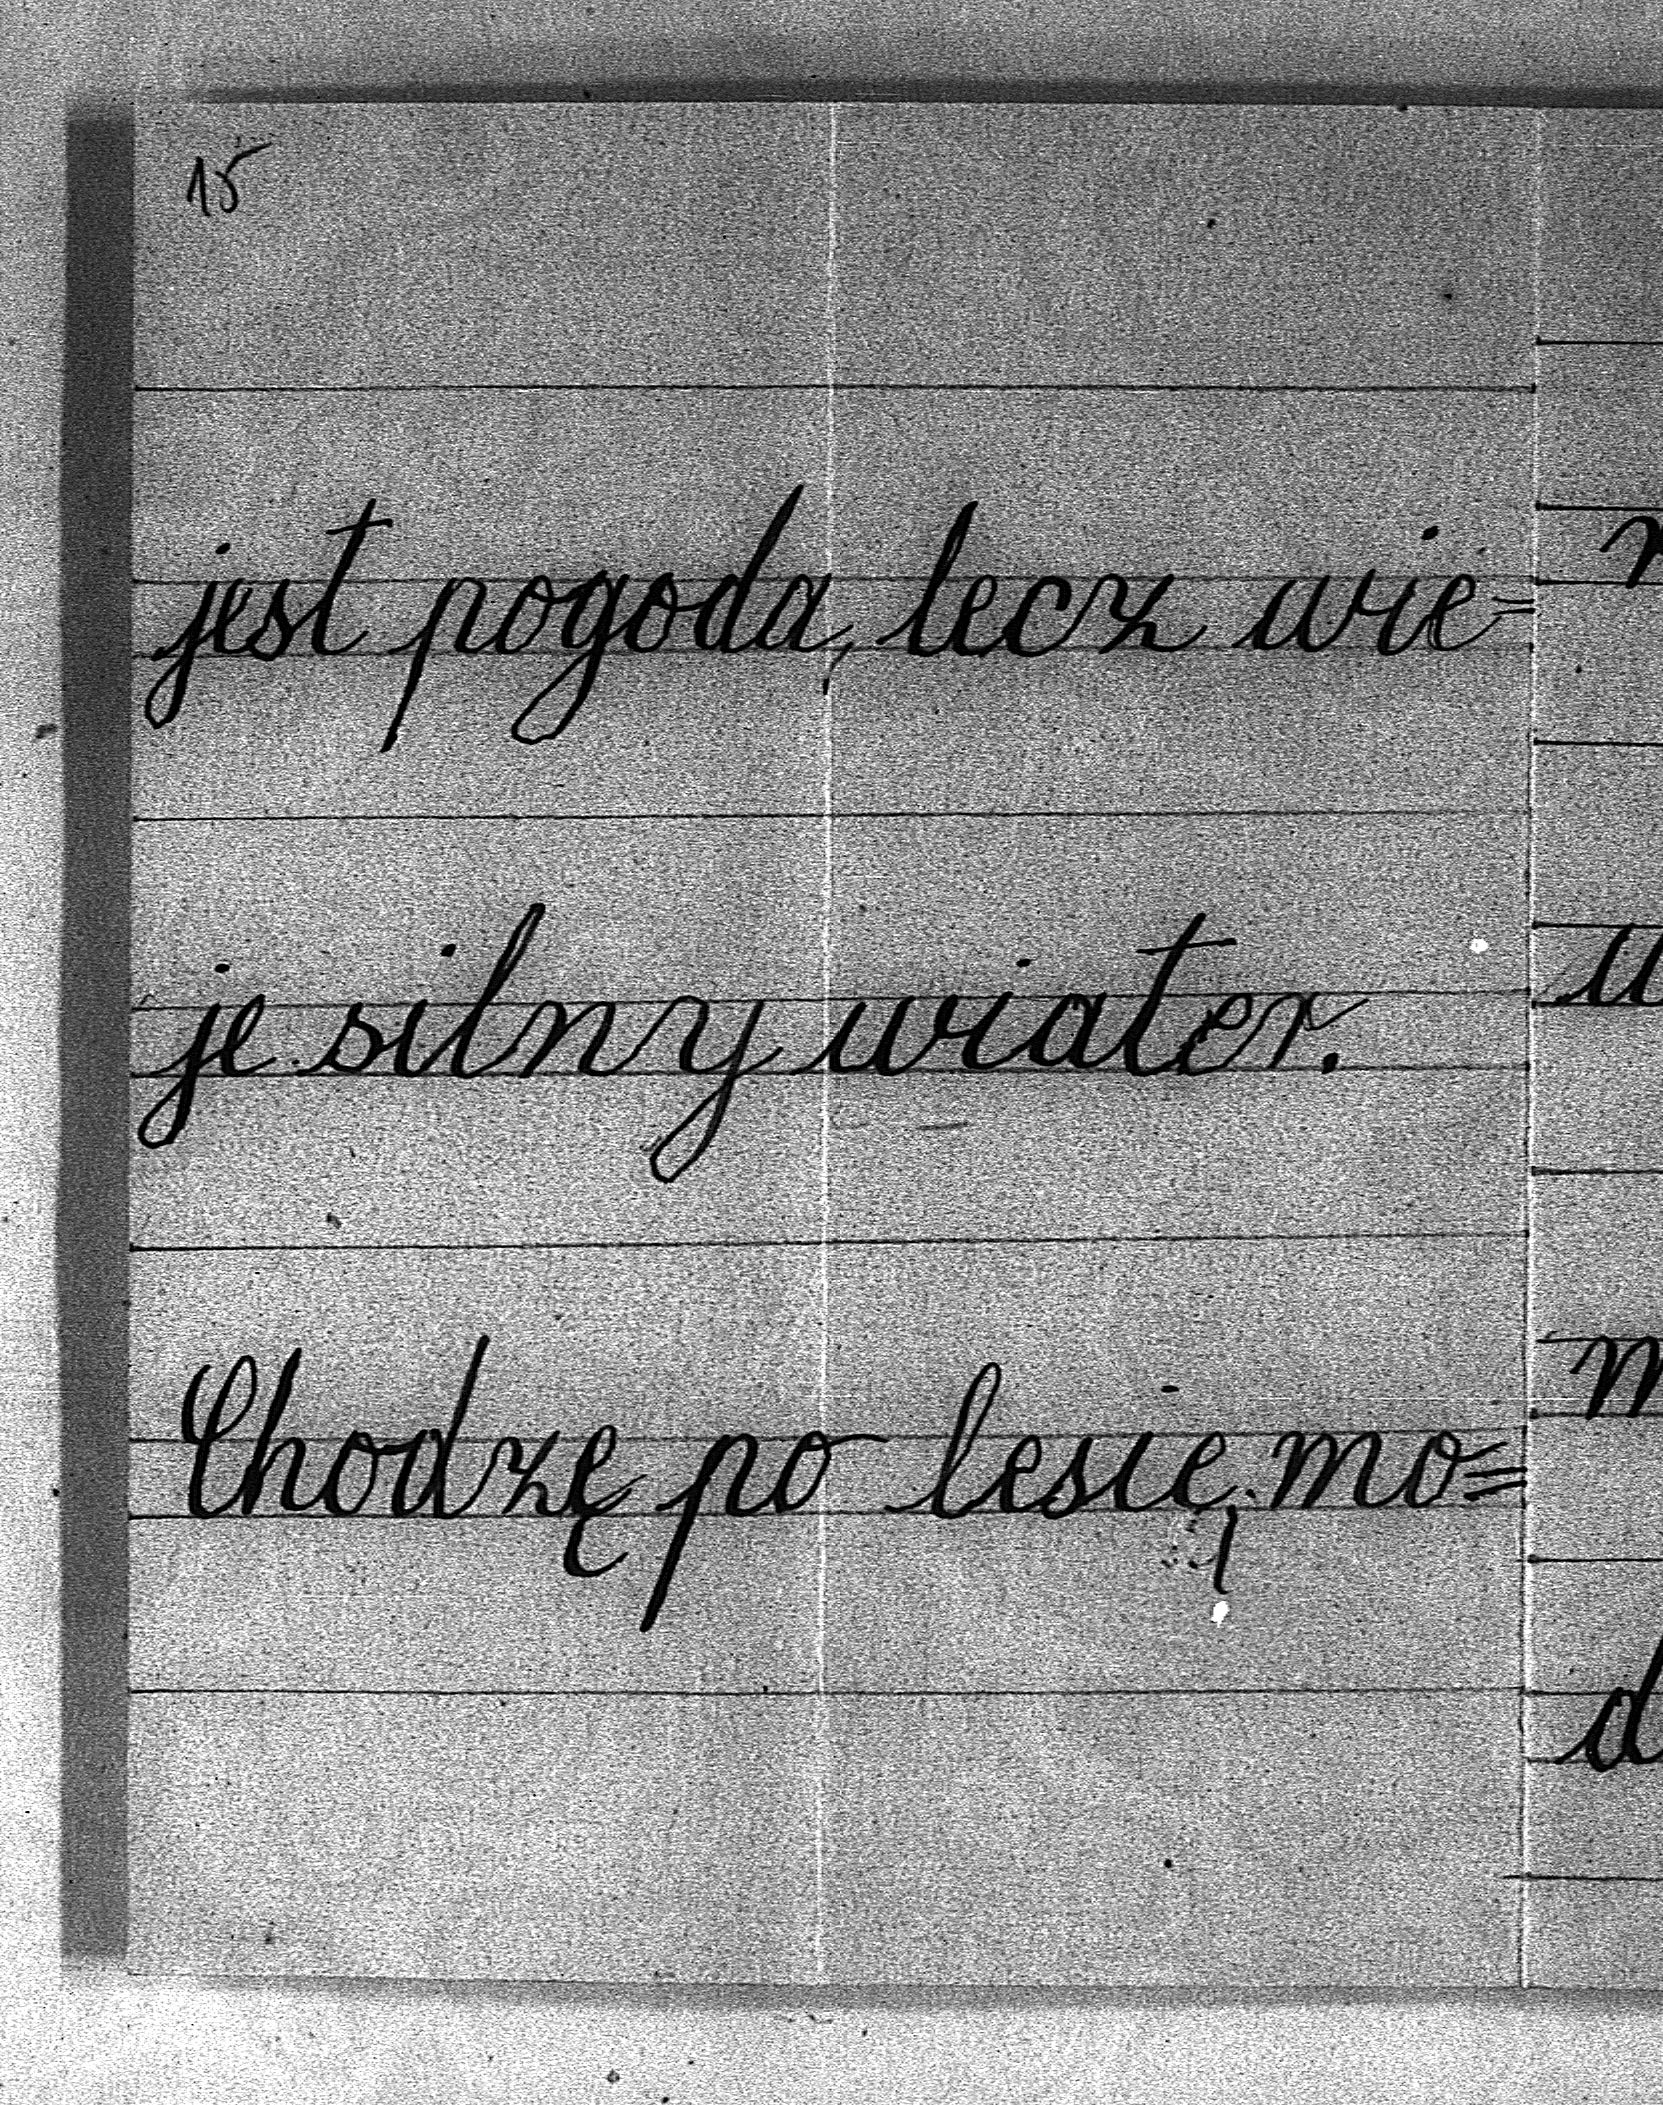 15
jest pogoda, lecz wie=
je silny wiater.
Chodzę po lesie, mo=